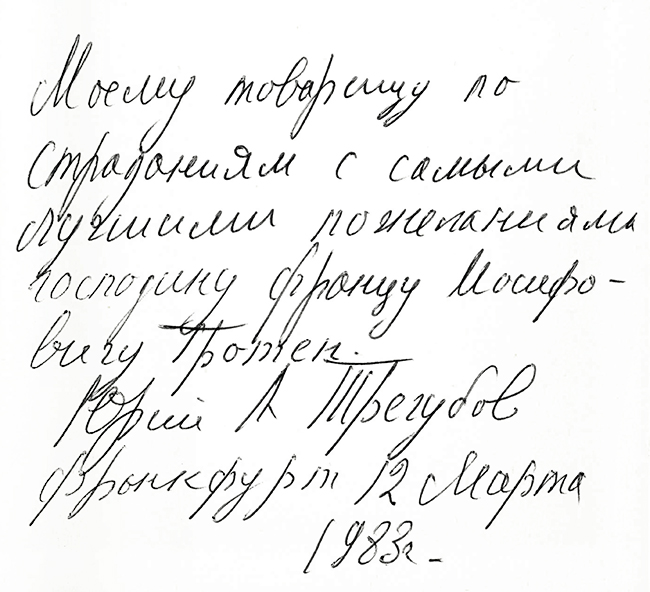 Моему товарищу по
страданиям с самыми
лучшими пожеланиями
господину Францу Иосифо-
вичу Гротен.
Юрий А Трегубов
Франкфурт 12 Марта
1983г.